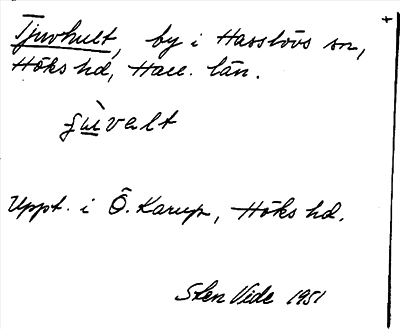 Tjuvhult, by i Hasslövs sn,
Höks hd, Hall. län.
Uppt. i Ö. Karup, Höks hd.
Sten Vide 1951